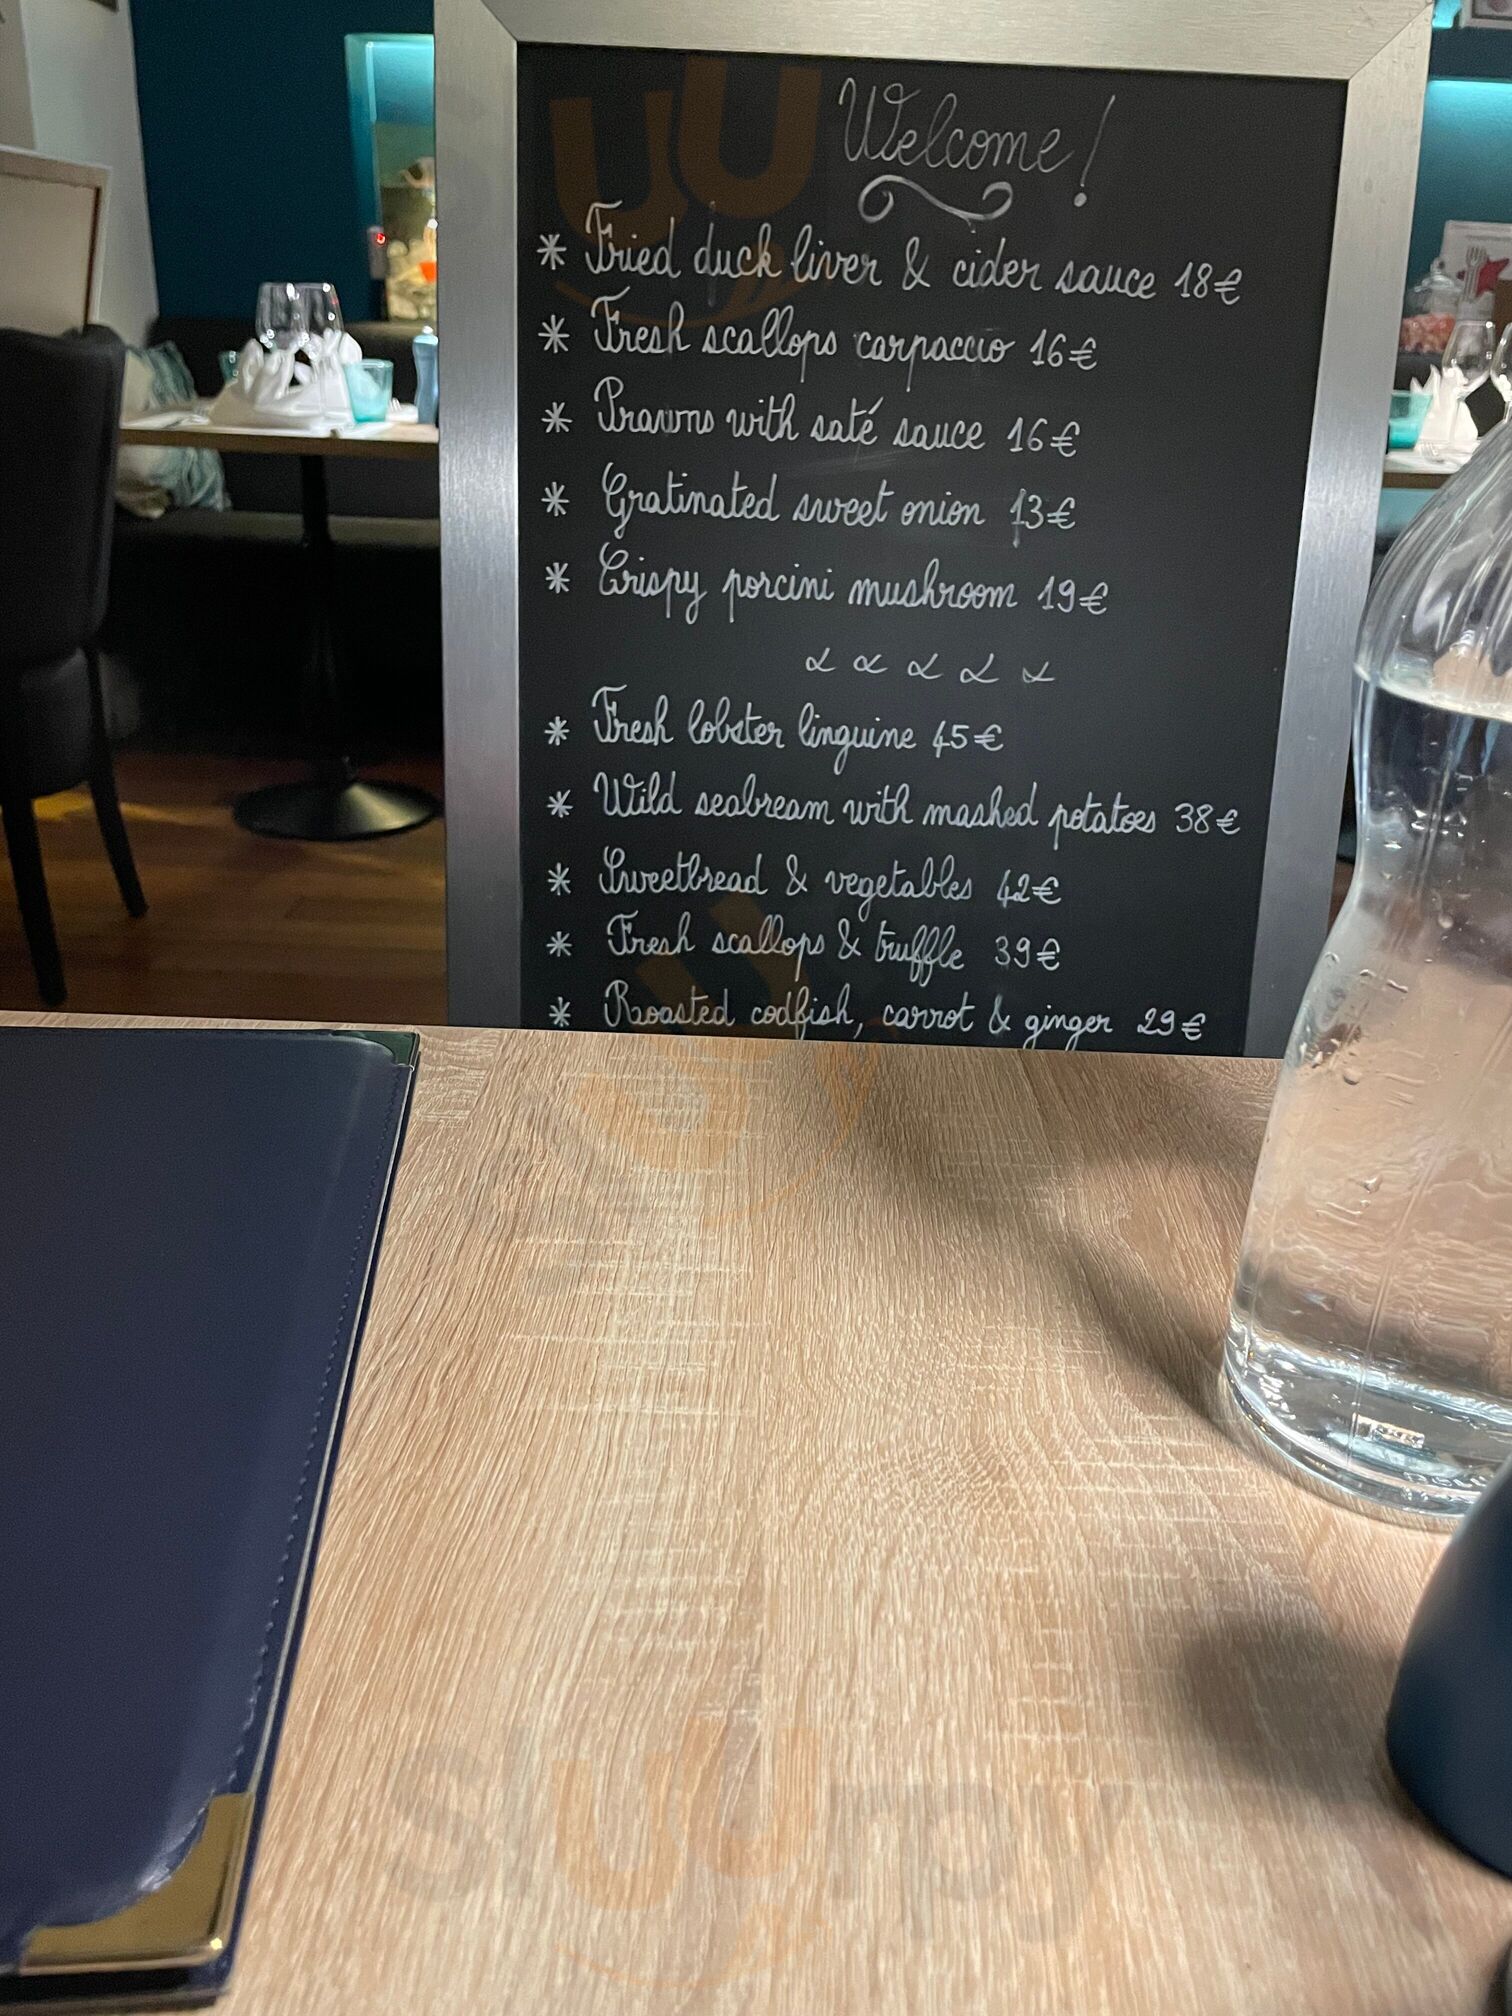 Welcome!
* Fried duck liver & cider sauce 18€
* Fresh scallops carpaccio 16€
* Prawns with saté sauce 16€
* Gratinated sweet onion 13€
* Crispy porcini mushroom 19€
* Fresh lobster linguine 45€
* Wild seabream with mashed potatoes 38€
* Sweetbread & vegetables 42€
* Fresh scallops & truffle 39€
* Roasted codfish, carrot & ginger 29€
sluurpy